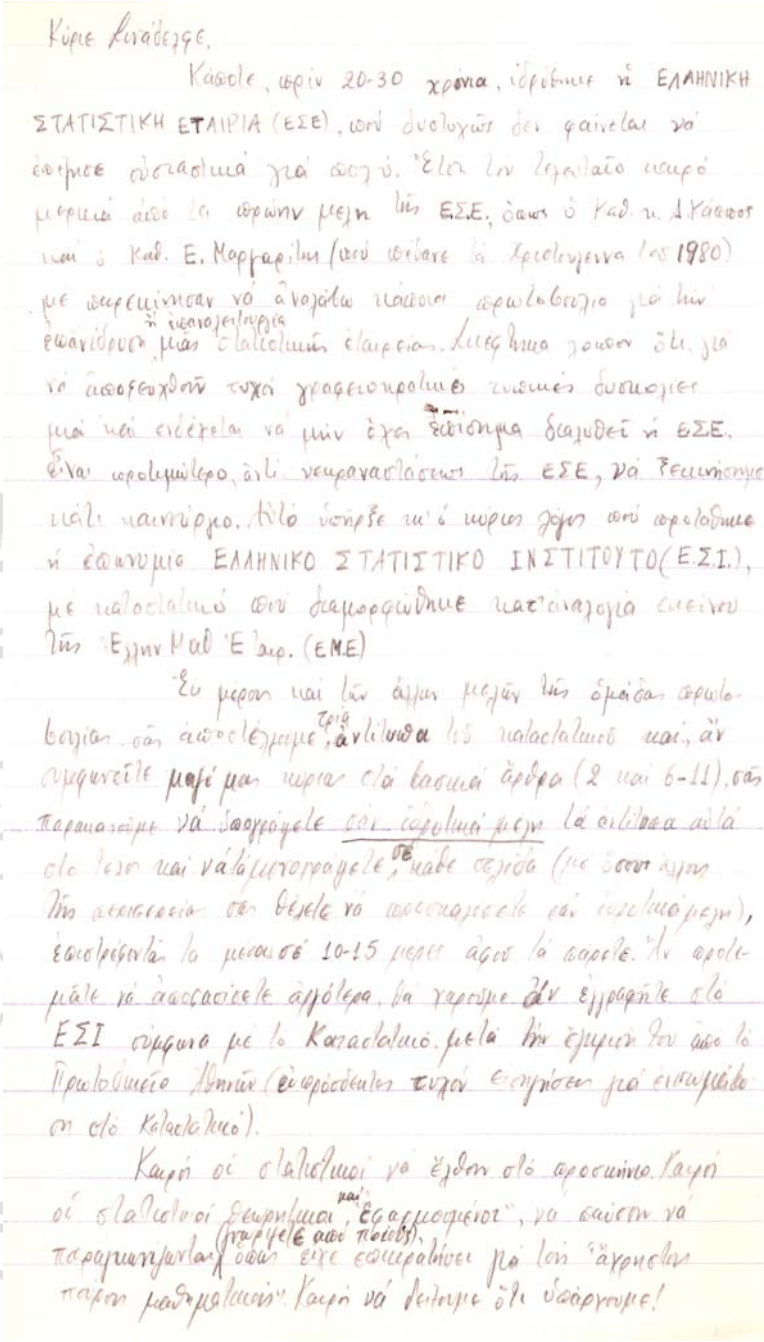 Κύριε Συνάδελφε,
Κάποτε, πρίν 20-30 χρόνια, ἱδρύθηκε ἡ ΕΛΛΗΝΙΚΗ
ΣΤΑΤΙΣΤΙΚΗ ΕΤΑΙΡΙΑ (ΕΣΕ), πού δυστυχῶς δέν φαίνεται νά
ἐπέζησε οὐσιαστικά γιά πολύ. Ἔτσι τόν τελευταῖο καιρό
μερικά ἀπό τα πρώην μέλη τῆς Ε.Σ.Ε. ὅπως ὁ Καθ. κ. Δ. Κάππος
καί ὁ Καθ. Ε. Μαργαρίτης (πού πέθανε τά Χριστούγεννα τοῦ 1980)
με παρεκίνησαν νά ἀναλάβω κάποια πρωτοβουλία γιά τήν
ἤ ἐπαναλειτουργία
ἐπανίδρυση μιᾶς στατιστικῆς ἑταιρείας. Σκέφτηκα λοιπόν ὅτι, γιά
νά ἀποφευχθοῦν τυχόν γραφειοκρατικές τυπικές δυσκολίες
μιά καί ἐνδέχεται νά μήν ἔχει ἐπίσημα διαλυθεῖ ἡ ΕΣΕ,
εἶναι προτιμώτερο, ἀντί νεκραναστάσεως τῆς ΕΣΕ, νά ξεκινήσουμε
κάτι καινούργιο. Αὐτό ὑπῆρξε κι' ὁ κύριος λόγος πού προτάθηκε
ἡ ἐπωνυμία ΕΛΛΗΝΙΚΟ ΣΤΑΤΙΣΤΙΚΟ ΙΝΣΤΙΤΟΥΤΟ (Ε.Σ.Ι.),
μέ καταστατικό πού διαμορφώθηκε κατ' ἀναλογία ἐκείνου
τῆς Ἑλλην Μαθ Ἑταιρ. (ΕΜΕ)
Ἐκ μέρους καί τῶν ἄλλων μελῶν τῆς ὁμάδας πρωτο-
τρία
βουλίας σᾶς ἀποστέλλουμε ἀντίτυπα τοῦ καταστατικοῦ καί, ἄν
συμφωνεῖτε μαζί μας κυρίως στά βασικά ἄρθρα (2 καί 6-11), σᾶς
παρακαλοῦμε νά ὑπογράψετε σάν ἱδρυτικά μέλη τά ἀντίτυπα αὐτά
σέ
στο τέλος και νά τά μονογράψετε, κάθε σελίδα (μέ ὅσους ἄλλους
τῆς περιφερείας σας θέλετε νά προσκαλέσετε σάν ἱδρυτικά μέλη),
ἐπιστρέφοντάς τα μέσα σέ 10-15 μέρες ἀφοῦ τά πάρετε. Ἄν προτι-
μᾶτε νά ἀποφασίσετε ἀργότερα, θά χαροῦμε ἄν ἐγγραφῆτε στό
ΕΣΙ σύμφωνα μέ τό Καταστατικό, μετά τήν ἔγκρισή του ἀπό τό
Πρωτοδικεῖο Ἀθηνῶν (εὐπρόσδεκτες τυχόν εἰσηγήσεις γιά ἐνσωμάτω-
ση στό Καταστατικό).
Καιρός οἱ στατιστικοί νά ἔλθουν στό προσκήνιο. Καιρός
καί
οἱ στατιστικοί θεωρητικοί, "ἐφαρμοσμένοι", νά παύσουν νά
παραγκωνίζωνται, ὅπως εἶχε ἐπικρατήσει γιά τούς "ἄχρηστους
πάρους μαθηματικούς". Καιρός νά δείξουμε ὅτι ὑπάρχουμε!